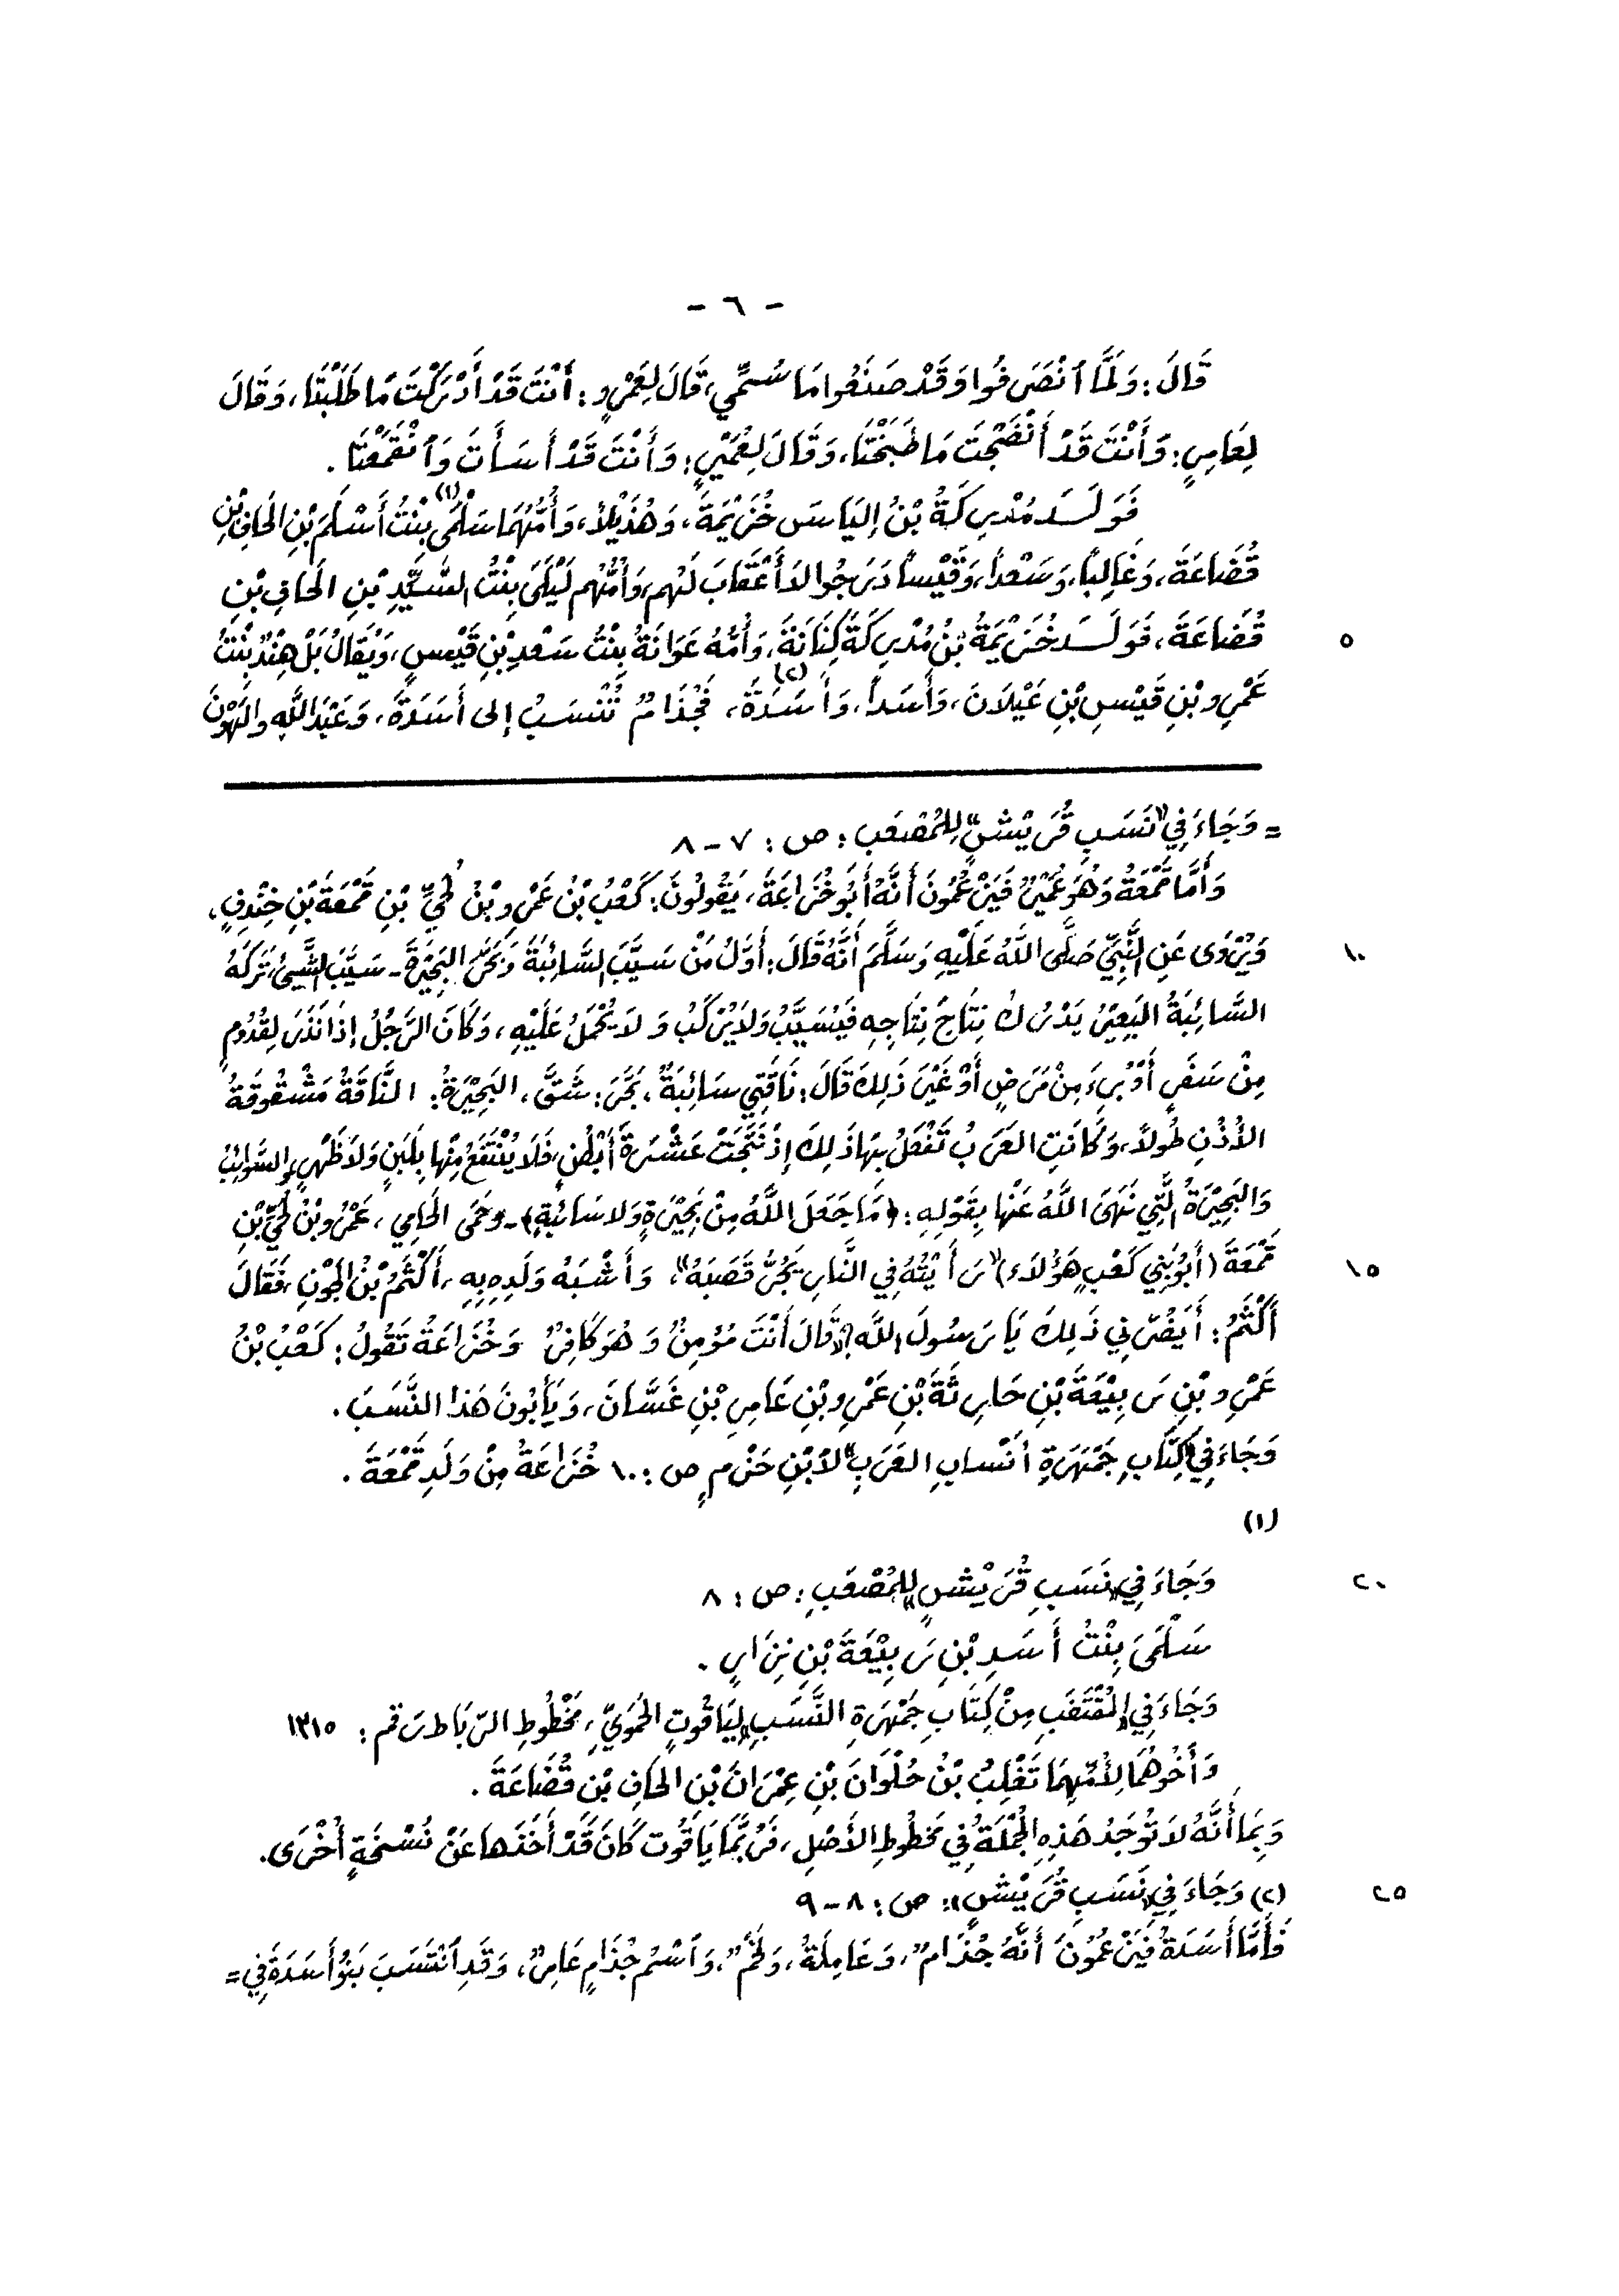 - ٦ -
قَالَ: وَلَمَّا ٱنْصَرَفُوا وَقَدْ صَنَعُوا مَا سُمِّي، قَالَ لِعَمْرٍو: أَنْتَ قَدْ أَدْرَكْتَ مَا طَلَبْتَا، وَقَالَ
لِعَامِرٍ: وَأَنْتَ قَدْ أَنْضَجْتَ مَا طَبَخْتَا، وَقَالَ لِعُمَيْرٍ: وَأَنْتَ قَدْ أَسَأْتَ وَٱنْقَمَعْتَا.
فَوَلَـدَ مُدْرِكَةُ بْنُ إليَاسَ خُزَيْمَةَ، وَهُذَيْلاً، وَأُمُّهُمَا سَلْمَى (١) بِنْتُ أَسْلُمَ بْنِ الحَافِ بْنِ
٥
قُضَاعَةَ، وَغَالِبًا، وَسَعْداً، وَقَيْساً دَرَجُوا لاَ أَعْقَابَ لَهُم، وَأُمُّهُم لَيْلَى بِنْتُ السَّيِّدِ بْنِ الحَافِ بْنِ
قُضَاعَةَ، فَوَلَـدَ خُزَيْمَةُ بْنُ مُدْرِكَةَ كِنَانَةَ، وَأُمُّهُ عَوَانَةُ بِنْتُ سَعْدِ بْنِ قَيْسٍ، وَيُقَالُ بَلْ هِنْدُ بِنْتُ
عَمْرِو بْنِ قَيْسِ بْنِ عَيْلاَنَ، وَأَسَداً، وَأَسَدَةَ (٢)، فَجُذَامُ تُنْسَبُ إلى أَسَدَةَ، وَعَبْدَ اللَّهِ والهَوْنَ
= وَجَاءَ فِي "نَسَبِ قُرَيْشٍ" لِلمُصْعَبِ: ص: ٧-٨
وَأَمَّا قَمْعَةُ وَهُوَ عُمَيْرٌ فَيَزْعُمُونَ أَنَّهُ أَبُو خُزَاعَةَ، يَقُولُونَ: كَعْبُ بْنُ عَمْرِو بْنُ لُحَيِّ بْنِ قَمْعَةَ بْنِ خِنْدِفٍ،
١٠
وَيُرْوَى عَنِ النَّبِيِّ صَلَّى اللَّهُ عَلَيْهِ وَسَلَّمَ أَنَّهُ قَالَ: أَوَّلُ مَنْ سَيَّبَ السَّائِبَةَ وَبَحَّرَ البَحِيْرَةَ - سَيَّبَ الشَّيْءَ تَرَكَهُ
السَّائِبَةُ البَعِيْرُ يَدْرُكُ نِتَاجَ نِتَاجِهِ فَيُسَيَّبُ وَلاَ يُرْكَبُ وَلاَ يُحْمَلُ عَلَيْهِ، وَكَانَ الرَّجُلُ إذَا نَذَرَ لِقُدُومٍ
مِنْ سَفَرٍ أَوْ بُرِءَ مِنْ مَرَضٍ أَوْ غَيْرَ ذَلِكَ قَالَ: نَاقَتِي سَائِبَةٌ، بَحَّرَ: شَقَّ، البَحِيْرَةُ: النَّاقَةُ مَشْقُوقَةُ
الأُذُنِ طُولاً، وَكَانَتِ العَرَبُ تَفْعَلُ بِهَا ذَلِكَ إذْ نَتَجَتْ عَشْرَةَ أَبْطُنٍ، فَلاَ يُنْتَفَعُ مِنْهَا بِلَبَنٍ وَلاَ ظَهْرٍ والسَّوائِبُ
وَالبَحِيْرَةُ الَّتِي نَهَى اللَّهُ عَنْهَا بِقَوْلِهِ: ﴿مَا جَعَلَ اللَّهُ مِنْ بَحِيْرَةٍ وَلا سَائِبَةٍ﴾ - وَحَمَى الحَامِي، عَمْرُو بْنُ لُحَيِّ بْنِ
١٥
قَمْعَةَ (أَبُو بَنِي كَعْبٍ هَؤُلاَء) "رَأَيْتُهُ فِي النَّارِ يَجُرُّ قَصَبَهُ"، وَأَشْبَهُ وَلَدِهِ بِهِ، أَكْثَمُ بْنُ الجَوْنِ، فَقَالَ
أَكْثَمُ: أَيَضُرُّنِي ذَلِكَ يَا رَسُولَ اللَّهِ؟ قَالَ أَنْتَ مُؤْمِنٌ وَهُوَ كَافِرٌ وَخُزَاعَةُ تَقُولُ: كَعْبُ بْنُ
عَمْرِو بْنِ رَبِيْعَةَ بْنِ حَارِثَةَ بْنِ عَمْرِو بْنِ عَامِرِ بْنِ غَسَّانَ، وَيَأْبُونَ هَذا النَّسَبَ.
وَجَاءَ فِي "كِتَابِ جَمْهَرَةِ أَنْسابِ العَرَبِ" لابْنِ حَزْمٍ ص: ١٠ خُزَاعَةُ مِنْ وَلَدِ قَمْعَةَ.
(١)
٢٠
وَجَاءَ فِي "نَسَبِ قُرَيْشٍ" لِلمُصْعَبِ: ص: ٨
سَلْمَى بِنْتُ أَسَدِ بْنِ رَبِيْعَةَ بْنِ نِزَارٍ.
وَجَاءَ فِي "المُقْتَضَبِ مِنْ كِتَابِ جَمْهَرَةِ النَّسَبِ" لِيَاقُوتٍ الحَمَوِيِّ، مَخْطُوطِ الرِّبَاط رَقم: ١٣١٥
وَأَخُوهُمَا لِأُمِّهِمَا تَغْلِبُ بْنُ حُلْوَانَ بْنِ عِمْرَانَ بْنِ الحَافِ بْنِ قُضَاعَةَ.
وَبِمَا أَنَّهُ لاَ تُوجَدُ هَذِهِ الجُمْلَةُ فِي مَخطُوطِ الأَصْلِ، فَرُبَّمَا يَاقُوت كَانَ قَدْ أَخَذَها عَنْ نُسْخَةٍ أُخْرَى.
٢٥
(٢) وَجَاءَ فِي "نَسَبِ قُرَيْشٍ": ص: ٨-٩
فَأَمَّا أَسَدَةُ فَيَزْعُمُونَ أَنَّهُ جُذَامٌ، وَعَامِلَةُ، وَلَخْمٌ، وَٱسْمُ جُذَامٍ عَامِرٌ، وَقَدِ ٱنْتَسَبَ بَنُو أَسَدَةَ فِي =